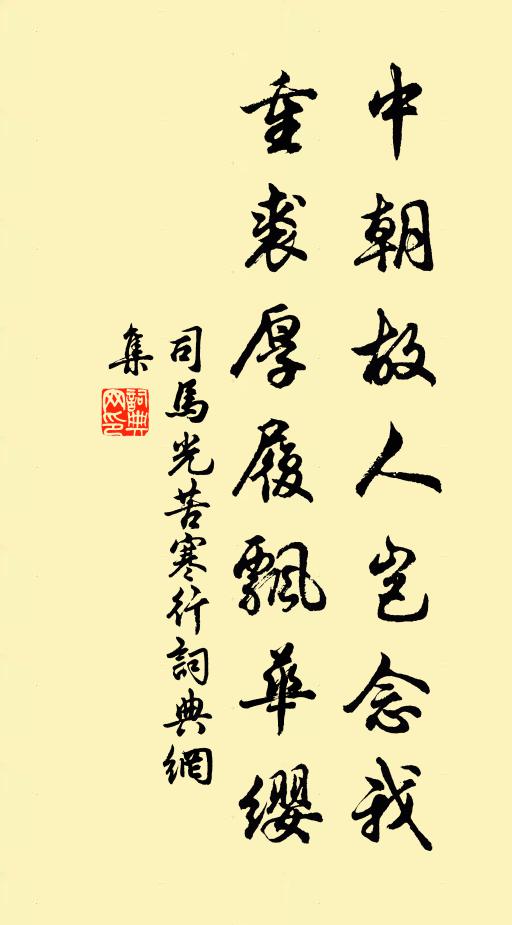 中朝故人岂念我
重裘厚履飘華缨
司馬光苦寒行詞典網
集
詞典
网印